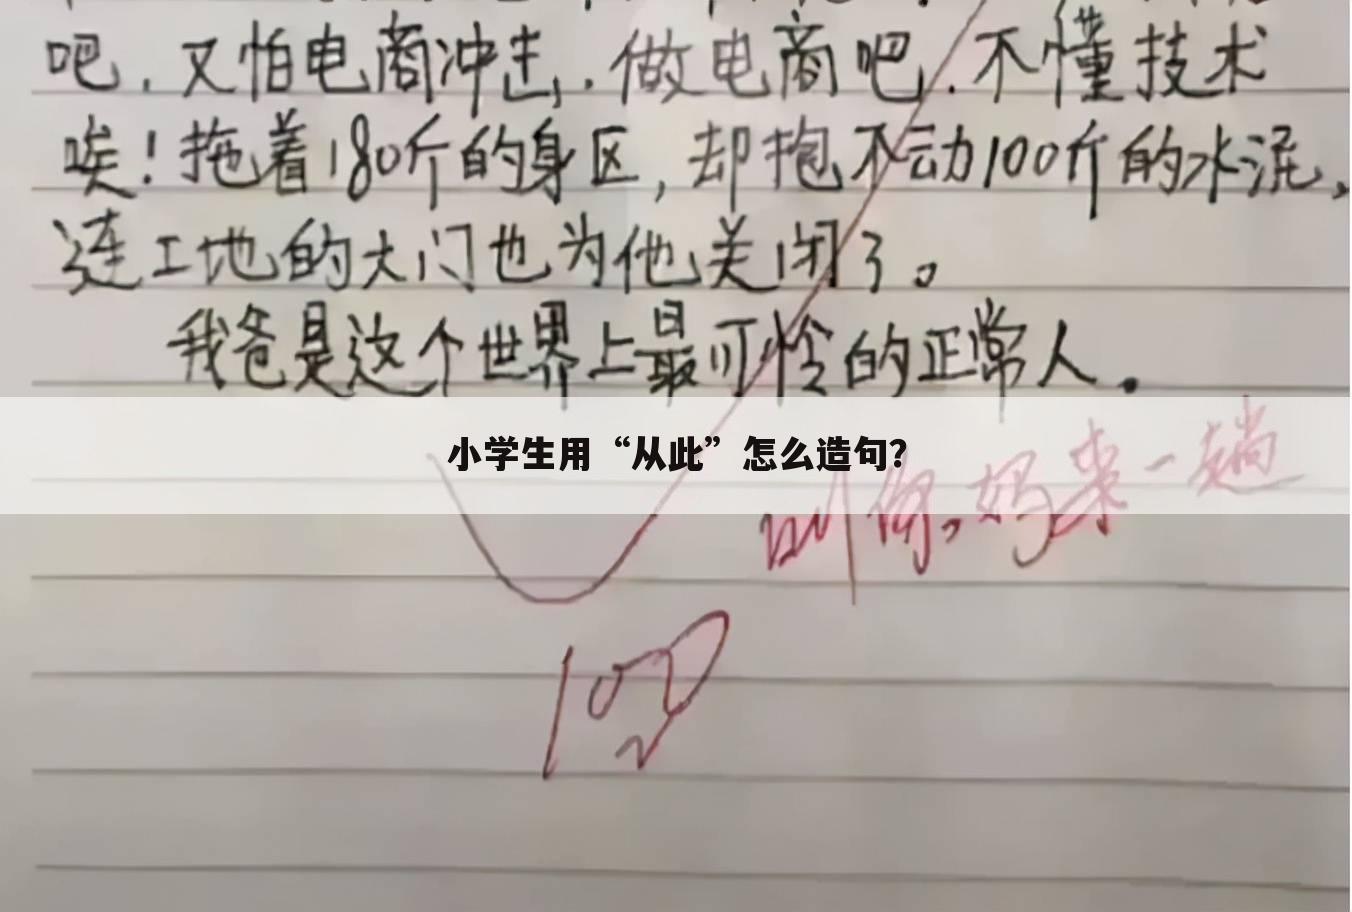 吧，又怕电商冲击，做电商吧，不懂技术
唉！拖着180斤的身区，却抱不动100斤的水泥，
连工地的大门也为他关闭了。
我爸是这个世界上最可怜的正常人。
小学生用“从此”怎么造句？
叫你妈来一趟
100